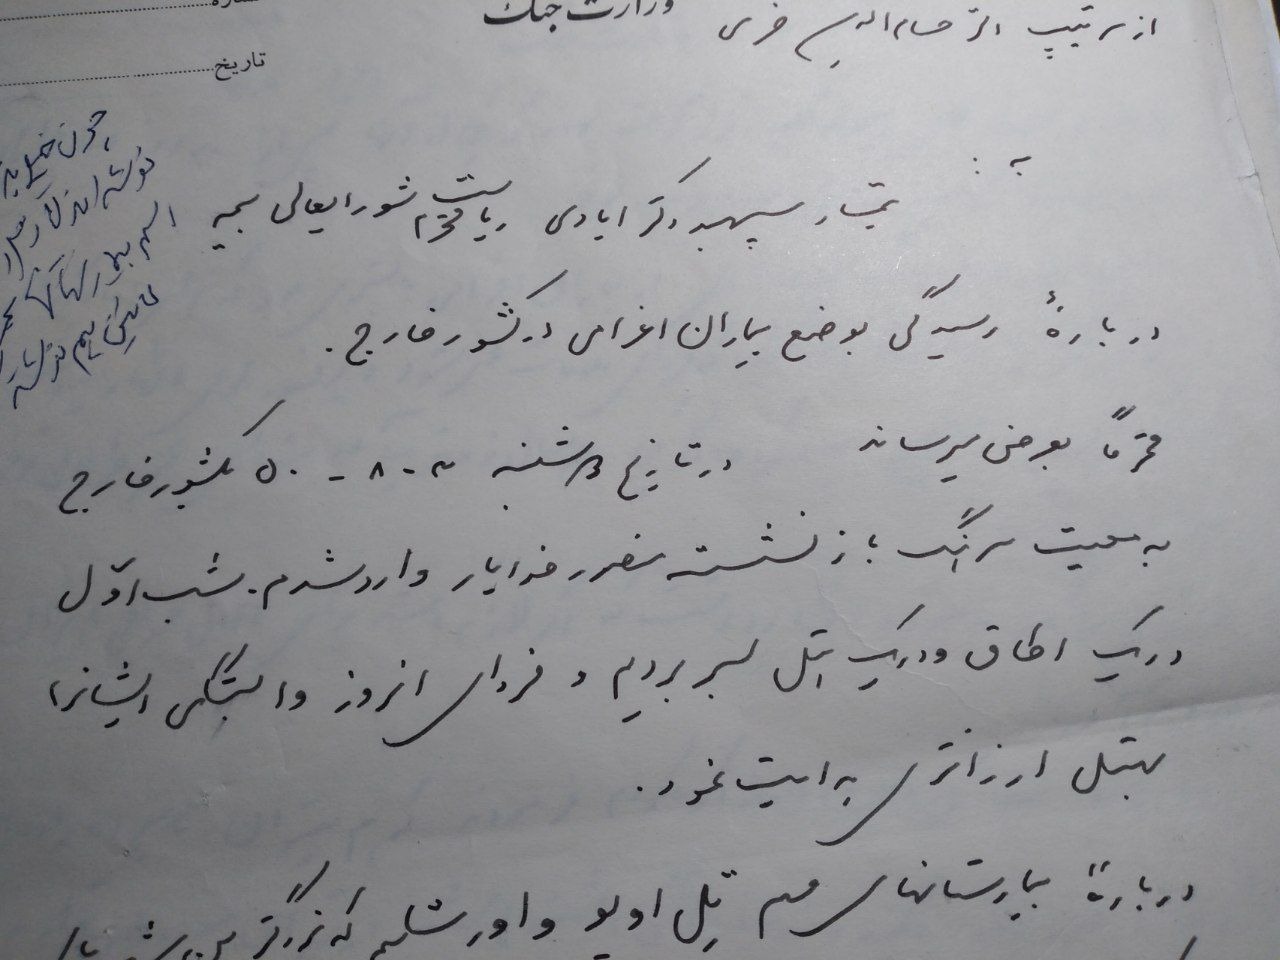 وزارت جنگ
شماره
تاریخ
از سرتیپ دکتر حسام الدین خرمی
به :
تیمسار سپهبد دکتر ایادی ریاست محترم شورایعالی بیمه
دربارهٔ رسیدگی بوضع بیماران اعزامی در کشور خارج .
محترماً بعرض میرساند در تاریخ ۳شنبه ۳ - ۸ - ۵۰ بکشور خارج
به معیت سرهنگ بازنشسته منصور خدایار وارد شدم . شب اوّل
در یک اطاق و در یک هتل بسر بردیم و فردای انروز وابستگی ایشانرا
بهتل ارزانتری هدایت نمود .
دربارهٔ بیمارستانهای مهم تِل اویو و اورشلیم که بزرگترین
چون خیلی
نوشته اند
اسم
هم نوشته